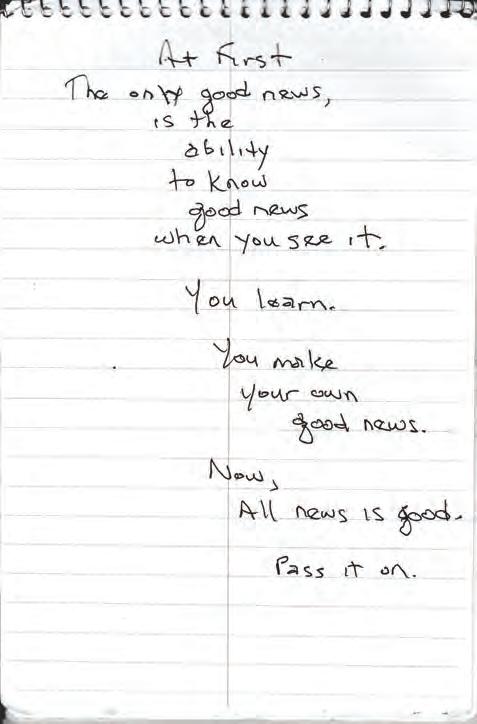 At First
The only good news,
is the
ability
to know
good news
when you see it.
You learn.
You make
your own
good news.
Now,
All news is good.
Pass it on.